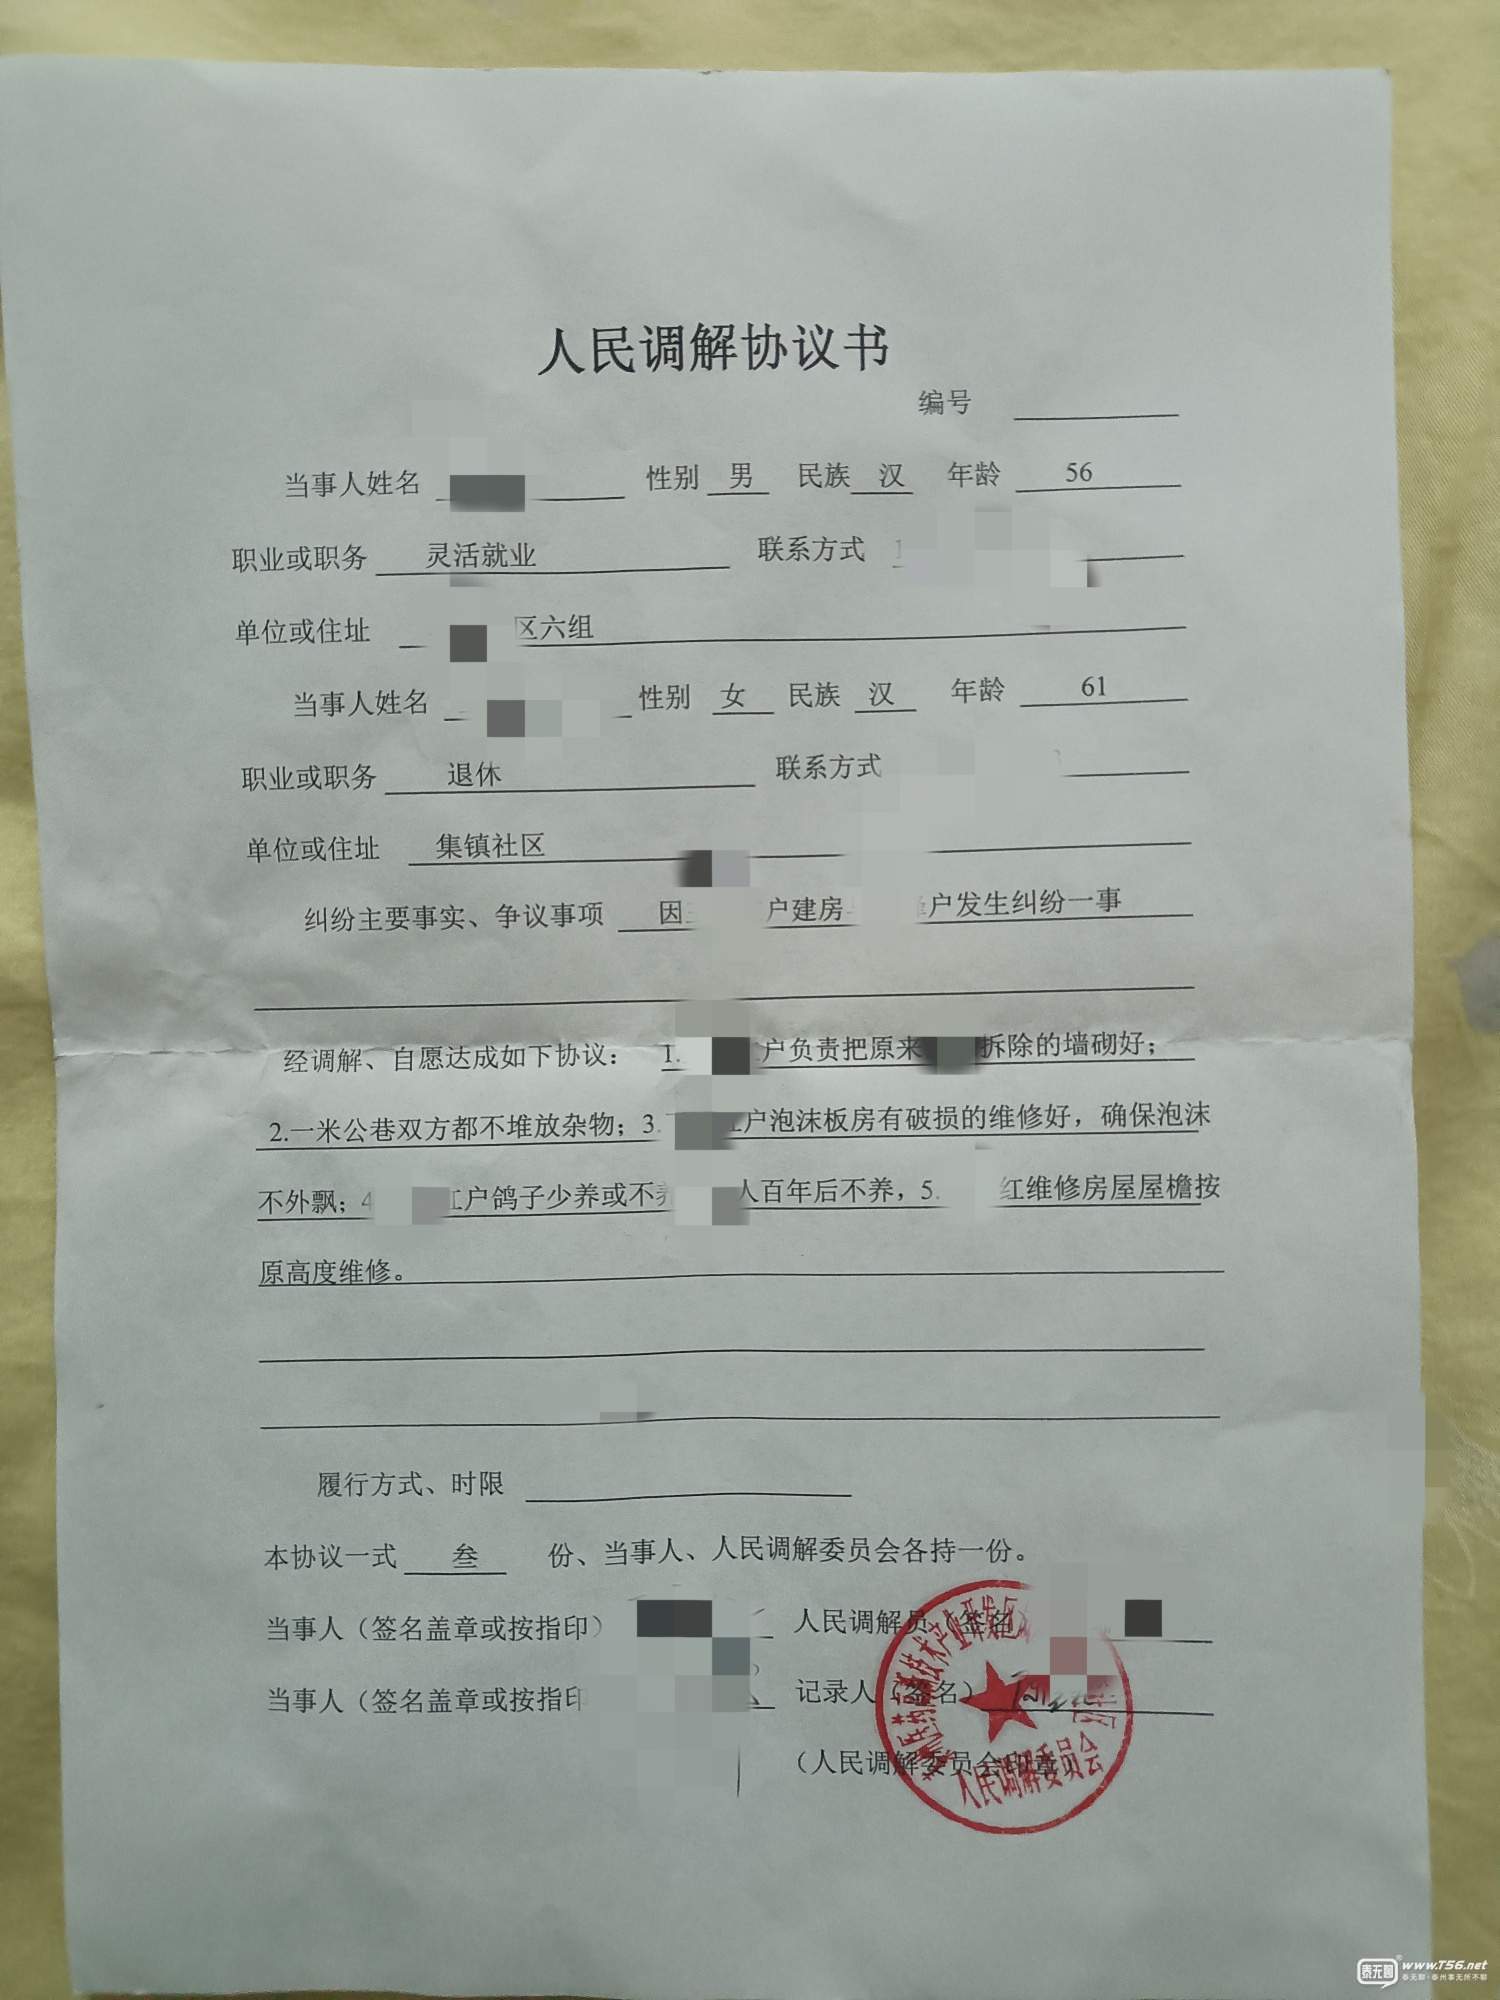 人民调解协议书
编号
当事人姓名 性别 男 民族 汉 年龄 56
职业或职务 灵活就业 联系方式
单位或住址 区六组
当事人姓名 性别 女 民族 汉 年龄 61
职业或职务 退休 联系方式
单位或住址 集镇社区
纠纷主要事实、争议事项 因 户建房 户发生纠纷一事
经调解、自愿达成如下协议： 1. 户负责把原来 拆除的墙砌好；
2.一米公巷双方都不堆放杂物；3. 户泡沫板房有破损的维修好，确保泡沫
不外飘；4 户鸽子少养或不养 人百年后不养，5. 红维修房屋屋檐按
原高度维修。
履行方式、时限
本协议一式 叁 份、当事人、人民调解委员会各持一份。
当事人（签名盖章或按指印） 人民调解员（签名）
当事人（签名盖章或按指印 记录人（签名）
（人民调解委员会印章）
技术产业开发区
人民调解委员会
泰无聊
www.T56.net
泰无聊·泰州事无所不聊